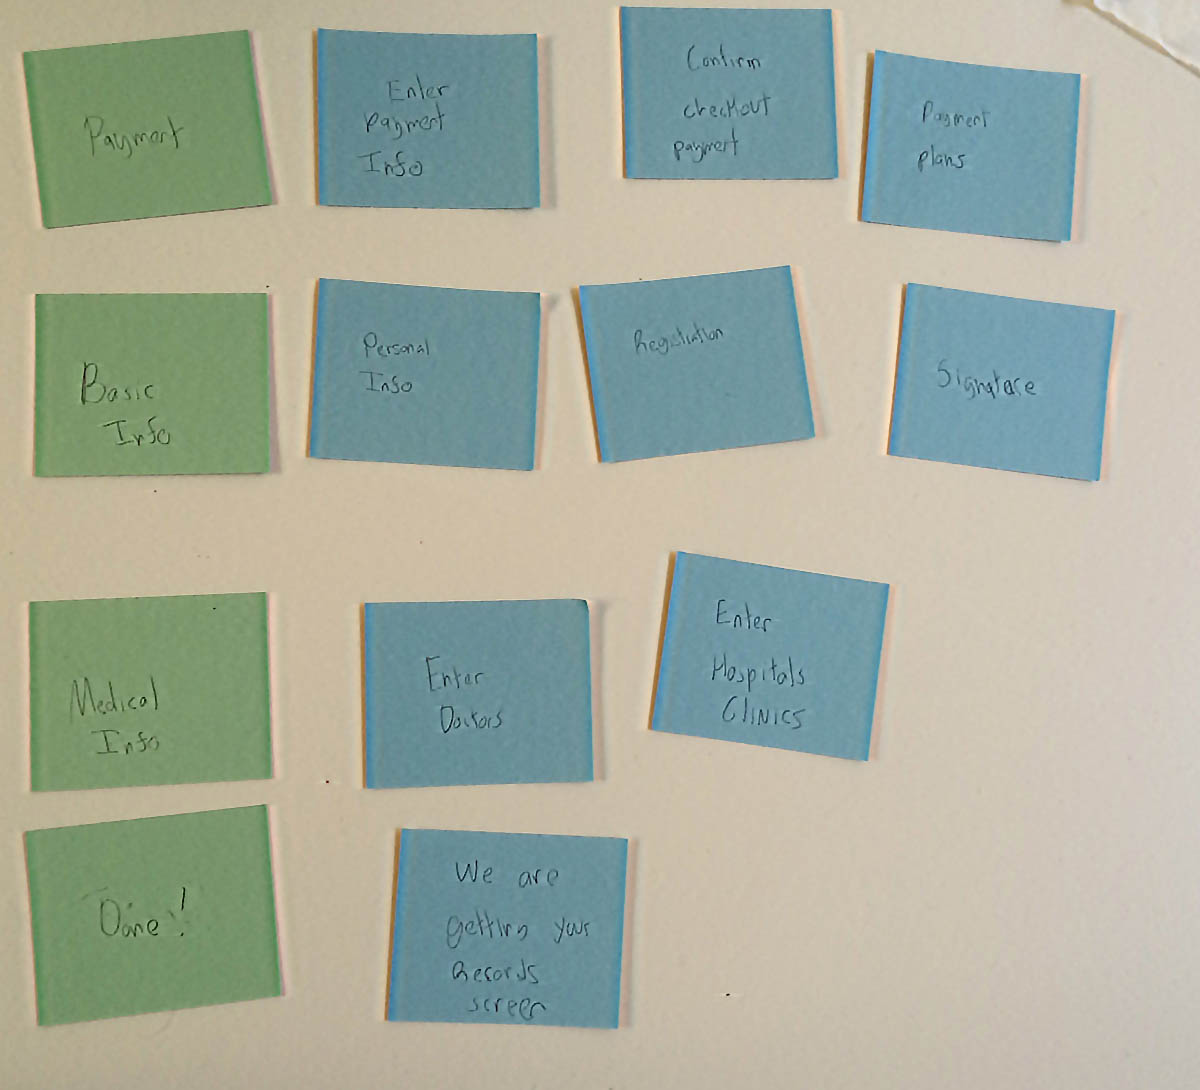 Payment
Enter
Payment
Info
Confirm
checkout
payment
Payment
plans
Basic
Info
Personal
Info
Registration
Signature
Medical
Info
Enter
Doctors
Enter
Hospitals
Clinics
Done!
We are
getting your
Records
screen